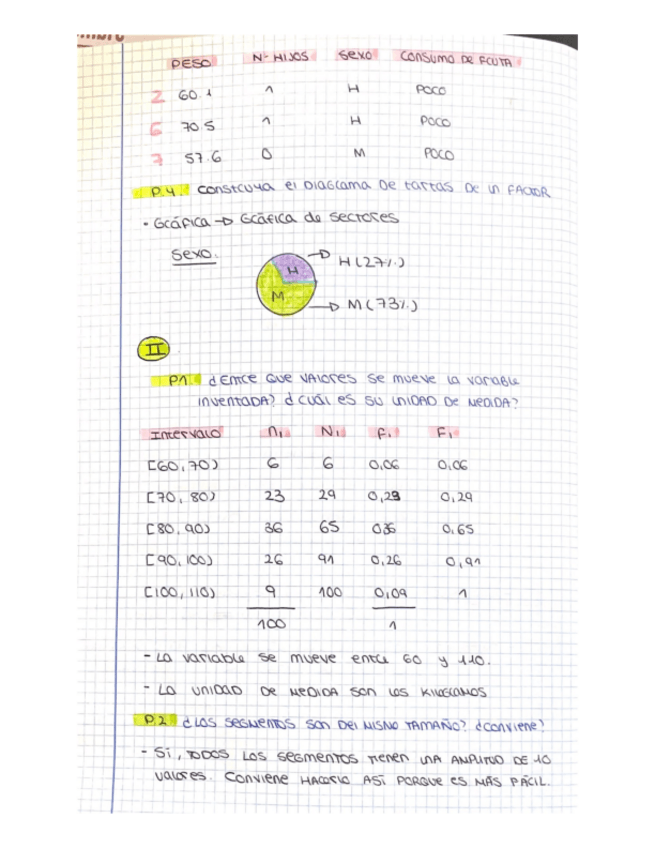 PESO Nº HIJOS SEXO CONSUMO DE FRUTA
2 60.1 1 H POCO
6 70.5 1 H POCO
7 57.6 0 M POCO
P.4. CONSTRUYA EL DIAGRAMA DE TARTAS DE UN FACTOR
· GRÁFICA → GRÁFICA DE SECTORES
SEXO.
H → H (27%)
M → M (73%)
II
P.1. ¿ENTRE QUE VALORES SE MUEVE LA VARIABLE
INVENTADA? ¿CUÁL ES SU UNIDAD DE MEDIDA?
INTERVALO ni Ni fi Fi
[60, 70) 6 6 0,06 0,06
[70, 80) 23 29 0,23 0,29
[80, 90) 36 65 0,36 0,65
[90, 100) 26 91 0,26 0,91
[100, 110) 9 100 0,09 1
100 1
- LA VARIABLE SE MUEVE ENTRE 60 Y 110.
- LA UNIDAD DE MEDIDA SON LOS KILOGRAMOS
P.2 ¿LOS SEGMENTOS SON DEL MISMO TAMAÑO? ¿CONVIENE?
- SÍ, TODOS LOS SEGMENTOS TIENEN UNA AMPLITUD DE 10
VALORES. CONVIENE HACERLO ASÍ PORQUE ES MÁS FÁCIL.